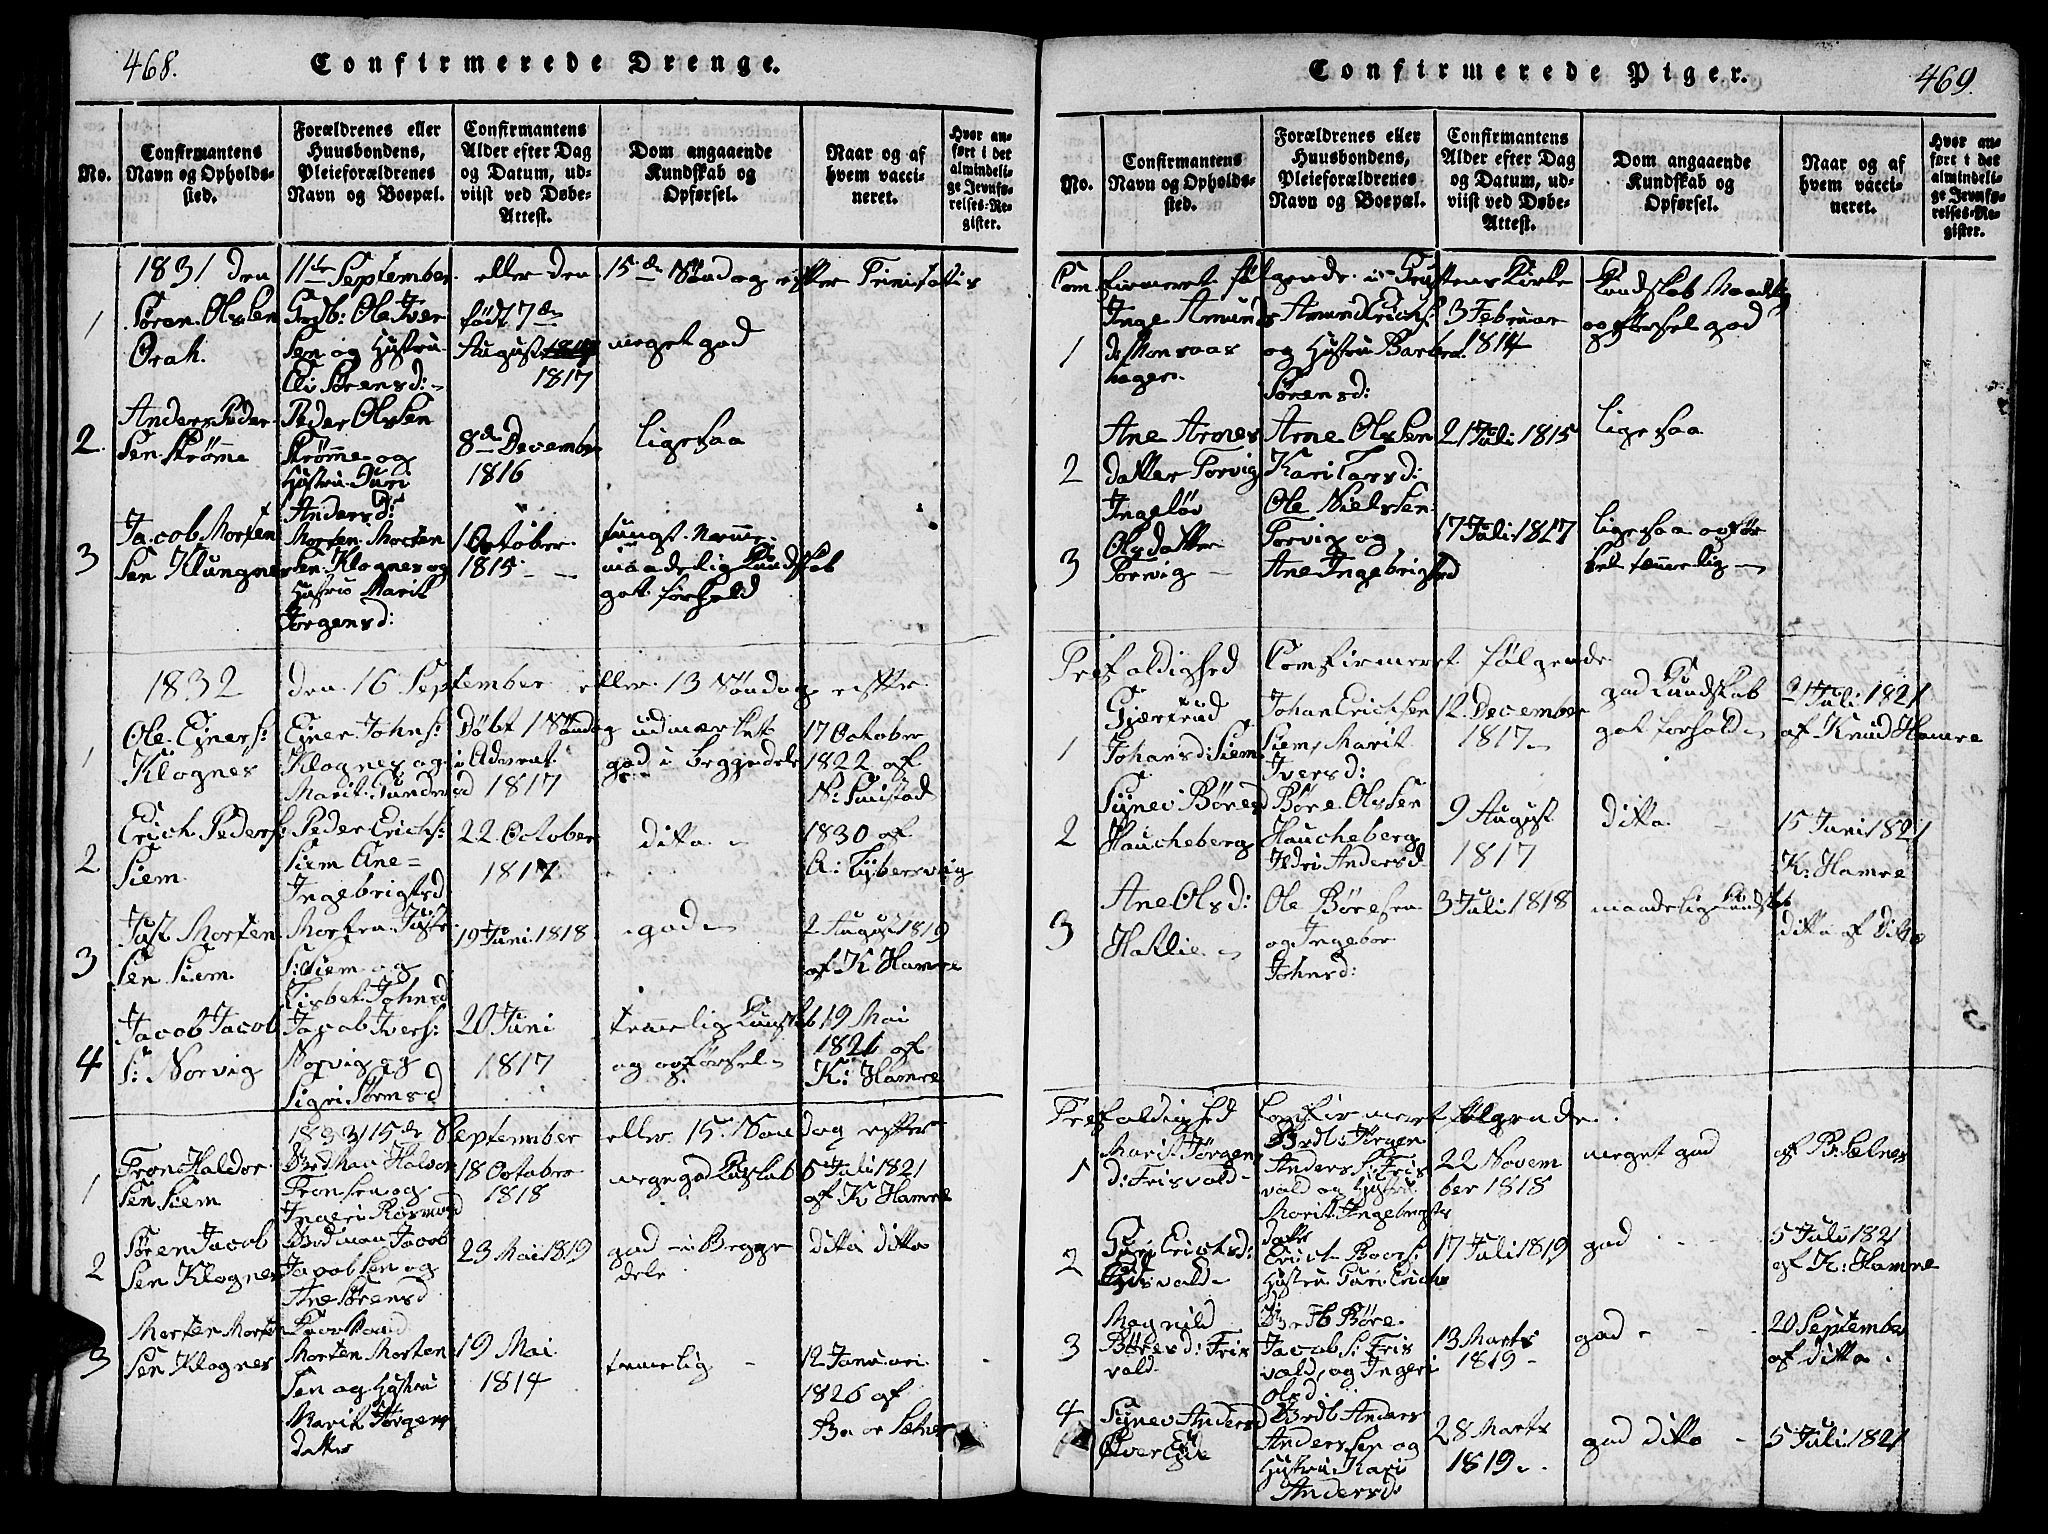 468.
Confirmerede Drenge.
No.
Confirmantens
Navn og Opholds-
sted.
Forældrenes eller
Huusbondens,
Pleieforældrenes
Navn og Boepæl.
Confirmantens
Alder efter Dag
og Datum, ud-
viist ved Døbe-
Attest.
Dom angaaende
Kundskab og
Opførsel.
Naar og af
hvem vacci-
neret.
Hvor an-
ført i det
almindeli-
ge Jevnfø-
relses-Re-
gister.
1831 den 11te September eller den 15de Søndag efter Trinitatis
1
Søren Olssen
Orah.
Ole Iver
Sen og Hustru
Eli Sørensd:
født 7de
August
1817
meget god
2.
Anders Peder
Sen Strømme
Peder Olssen
Strømme og
Hustru Guri
Andersd:
8de December
1816
ligesaa
3
Jacob Morten
Sen Klungnes
Morten Morten
Sen Klognes og
Hustru Marit
Jørgensd:
1 October
1815
maadelig Kundskab
got forhold
1832 den 16 September eller 13 Søndag efter
1
Ole Ejners:
Klognes
Ejner Johns:
Klognes og
Marit Gunders
Døbt 1 Søndag
i Advent
1817
udmærket
god i beggedele
17 October
1822 af
2
Erich Peders:
Siem
Peder Erichs:
Siem Ane
Ingebrigtsd
22 October
1817
ditto
1830 af
3
Just Morten
Sen Siem.
Morten Just
S: Siem og
Lisbet Johnsd
19 Juni 1818
god
2 August 1819
af K Hamre
4
Jacob Jacob
S: Norvig
Jacob Ivers:
Norvig og
Sigri Sørensd
20 Juni
1817
temmelig Kunskab
og opførsel
19 Mai
1821 af
K: Hamre
1833 15de September eller 15. Søndag efter
1
Tron Haldor
Sen Siem
Tronsen og
Ingeri
18 October
1818
5 Juli 1821
af K Hamre
2
Søren Jacob
Sen Klognes
Jacob
Jacobsen og
Ane Sørensd
23 Mai 1819
god i Begge
dele
ditto ditto
3
Morten Morten
Sen Klognes
Morten Morten
Sen og Hustru
Marit Jørgens
datter
19 Mai
1814
temmelig
12 Januari
1826 af
469.
Confirmerede Piger.
No.
Confirmantens
Navn og Opholds-
sted.
Forældrenes eller
Huusbondens,
Pleieforældrenes
Navn og Boepæl.
Confirmantens
Alder efter Dag
og Datum, ud-
viist ved Døbe-
Attest.
Dom angaaende
Kundskab og
Opførsel.
Naar og af
hvem vacci-
neret.
Hvor an-
ført i det
almindeli-
ge Jevnfø-
relses-Re-
gister.
Comfirmeret følgende i Kirke
1
Inge Amund
d: Monsaas
hagen
Amund Erichs:
og Hustru Barbra
Sørensd:
3 Februar
1814
Kundskab Maadelig
opførsel god
2
Ane Arnes
datter Torvig
Arne Olssen
Kari Larsd:
21 Juli 1815
ligesaa
3
Ingeløv
Olsdatter
Torvig
Ole Nielssen
Torvig og
Ane Ingebrigtsd
17 Juli 1817
ligesaa opfør
sel temmelig
Trefaldighed Comfirmeret følgende
1
Gjærtrud
Johansd: Siem
Johan Erichsen
Siem, Marit
Iversd:
12 December
1817
god Kundskab
got forhold
21 Juli 1821
af Knud Hamre
2
Synev Børesd
Haucheberg
Børe Olssen
Haucheberg
Ildri Andersd
9 August
1817
ditto
15 Juni 1821
K: Hamre
3
Ane Olsd:
Hatlie
Ole Børesen
og Ingebor
Johnsd:
3 Juli 1818
maadelig Kundskab
ditto af ditto
Trefaldighed Comfirmeret følgende
1
Marit Jørgens
d: Frisvald
Jørgen
Anders S: Fris
vald og Hustru
Marit Ingebrigts
datter
22 Novem
ber 1818
meget god
af B: Selnes
2
Guri Erichsd:
Frisvald
Hustru Guri Erichs
17 Juli 1819
god
5 Juli 1821
af K: Hamre
3
Magnild
Børesd: Fris
vald
Børe
Jacob S: Fris
vald, og Ingeri
Olsd
13 Marts
1819
god
20 September
af ditto
4
Synev Andersd
Øver Eide
Anders
Anderssen og
Hustru Kari
Andersd:
28 Marts
1819
god ditto
5 Juli 1821